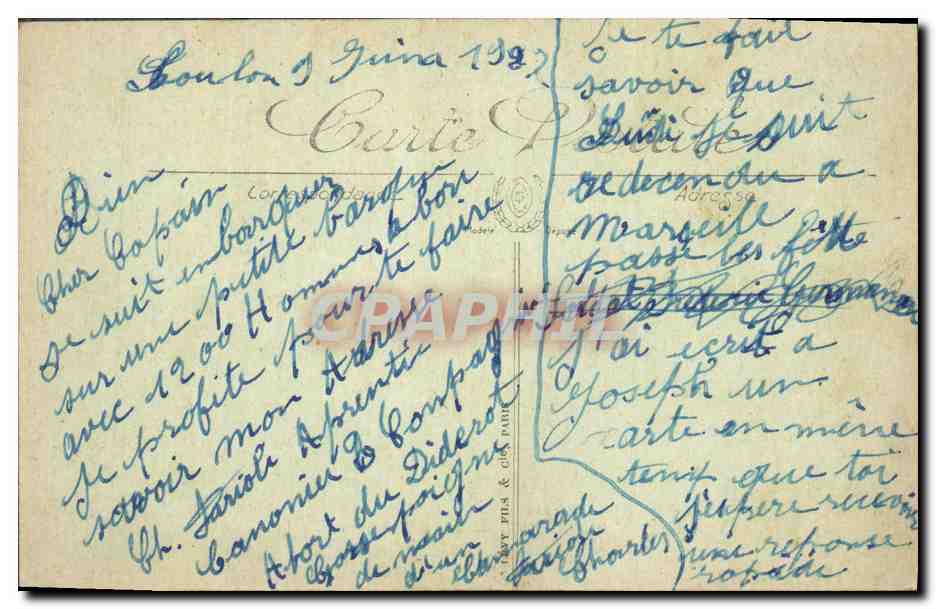 Toulon 9 Juin 1927
Carte Postale
Correspondance
Adresse
Modèle Déposé
LEVY FILS & Cie PARIS
CRAPHIL
Bien
Cher Copain
Je suit embarquer
sur une putite barque
avec 1200 Hommes a bor
Je profite pour te faire
savoir mon Adresse
Ch. Farioli Aprentie
Canonier B Compag
Abort du Diderot
Grosse poigne
de main
d'un
Camarade
Farioli
Charles
Je te fait
savoir que
Lundi Je suit
redecendu a
Marseille
passé les fette
J'ai ecrit a
Joseph un
carte en même
temp que toi
J'espere recevoir
une reponse
rapide